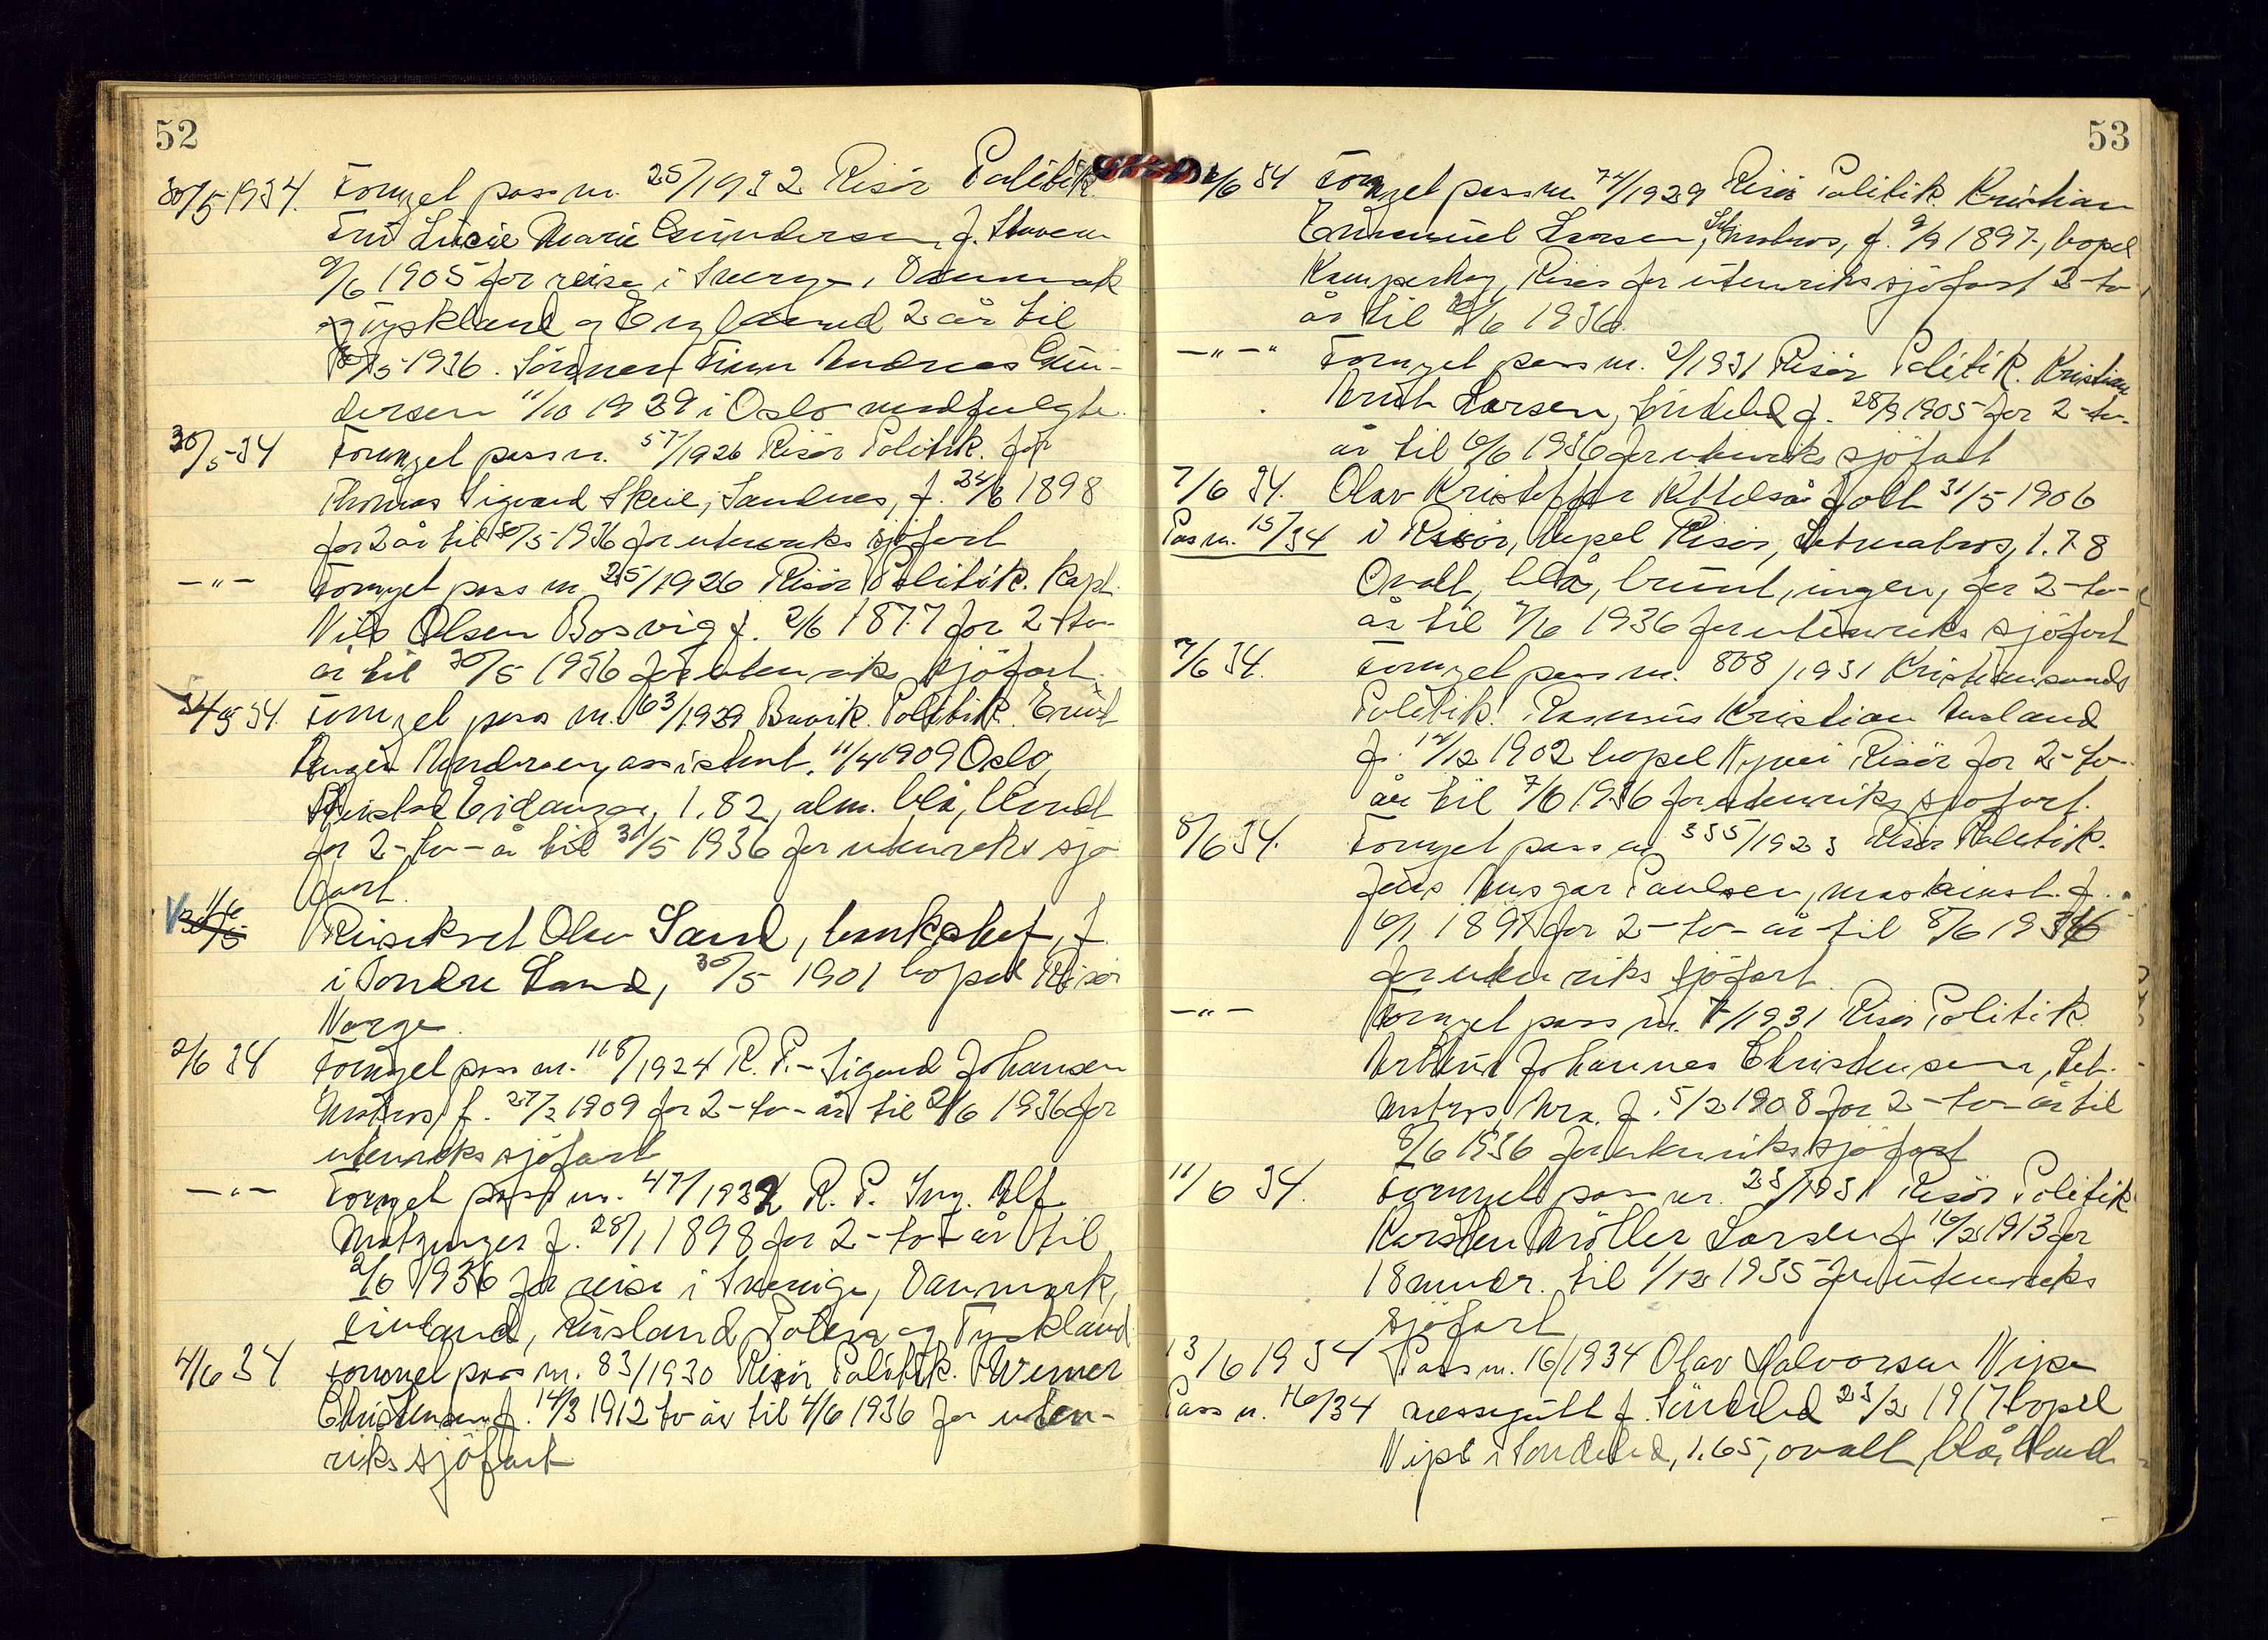 52
30/5 1934. Fornyet pass nr. 25/1932 Risör Politik.
Fru Lucie Marie Gundersen, f.
9/6 1905 for reise i Sverge, Danmark
og Tyskland og England 2 år til
30/5 1936. Sönnen Finn Andreas Gun-
dersen 11/10 1929 i Oslo medfulgte.
30/5-34 Fornyet pass nr. 57/1926 Risör Politik. for
Thomas Sigvard Skeie, Sandnes, f. 24/6 1898
for 2 år til 30/5 1936 for utenriks sjöfart
-"- Fornyet pass nr. 25/1926 Risör Politik. Kapt.
Nils Olsen Bosvig f. 2/6 1877 for 2-to-
år til 30/5 1936 for utenriks sjöfart.
31/5 34. Fornyet pass nr. 63/1929 Politik.
Andersen, assistent, 11/4 1909 Oslo,
Eidanger, 1.82, alm. blå, blondt
for 2-to-år til 31/5 1936 for utenriks sjö
fart.
V 11/6 30/5 Reisekort Olav Sand, banksjef, f.
i Söndre Land, 30/5 1901 bopel Risör
Norge.
2/6 34 Fornyet pass nr. 118/1924 R. P. - Sigurd Johansen
Matros, f. 27/2 1909 for 2-to-år til 2/6 1936 for
utenriks sjöfart
-"- Fornyet pass nr. 47/1932 R. P. Ing. Alf
f. 28/1 1898 for 2-to-år til
2/6 1936 for reise i Sverige, Danmark,
Finland, Rusland, Polen og Tyskland.
4/6 34 Fornyet pass nr. 83/1930 Risör Politik. Werner
Christensen f. 14/3 1912 to år til 4/6 1936 for uten-
riks sjöfart
53
6/6 34 Fornyet pass nr. 74/1929 Risör Politik. Kristian
Emanuel Larsen, matros, f. 9/9 1897, bopel
Kamperhaug, Risör for utenriks sjöfart 2-to-
år til 6/6 1936.
-"-" Fornyet pass nr. 2/1931 Risör Politik. Kristian
Larsen, Söndeled f. 28/9 1905 for 2-to-
år til 6/6 1936 for utenriks sjöfart
7/6 34. Olav Kristoffer Kittelså född 31/5 1906
Pas nr. 15/34 i Risör, bopel Risör, Letmatros, 1.78
Ovalt, blå, brunt, ingen, for 2-to-
år til 7/6 1936 for utenriks sjöfart
7/6 34. Fornyet pass nr. 808/1931 Kristiansands
Politik. Rasmus Kristian Ausland
f. 12/12 1902 bopel Nyvei Risör for 2-to-
år til 7/6 1936 for utenriks sjöfart.
8/6 34. Fornyet pass nr. 335/1923 Risör Politik.
Jens Ansgar Paulsen, maskinist. f.
6/1 1897 for 2-to-år til 8/6 1936
for utenriks sjöfart.
-"- Fornyet pass nr. 7/1931 Risör Politik.
Arthur Johannes Christensen, Let.
matros, f. 5/2 1908 for 2-to-år til
8/6 1936 for utenriks sjöfart
11/6 34. Fornyet pass nr. 23/1931 Risör Politik
Karsten Möller Larsen f. 16/2 1913 for
18 mndr. til 1/12 1935 for utenriks
sjöfart
13/6 1934 Pass nr. 16/1934 Olav Halvorsen Vipe
Pass nr. 16/34 messegutt f. Söndeled 23/2 1917 bopel
Vipe i Söndeled, 1.65, ovalt, blå, blond